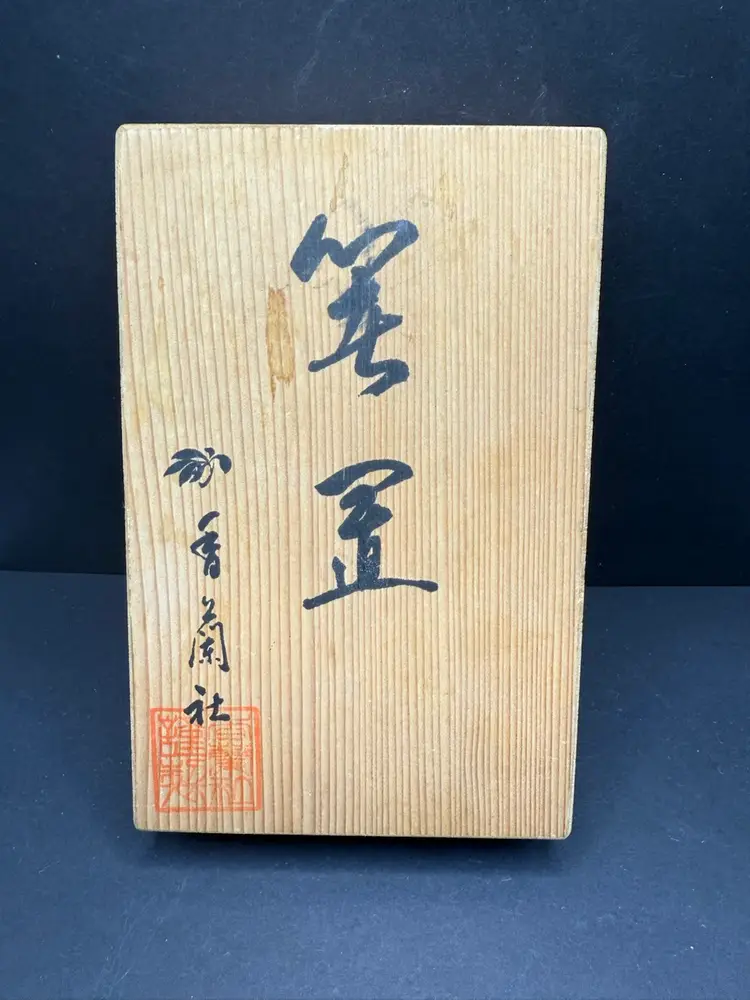 箸置
香蘭社